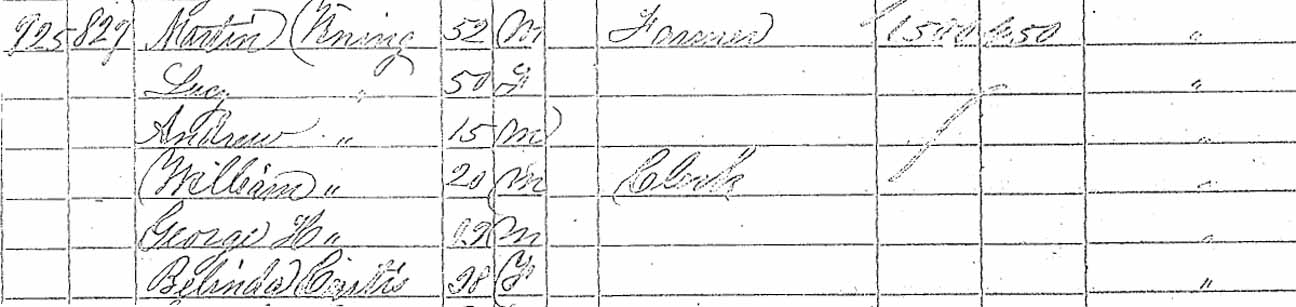 925 829 Martin Vining 52 M Farmer 1500 650 "
Lucy " 50 F "
Andrew " 15 M "
William " 20 M Clerk "
George H " 12 M "
Belinda Curtis 28 F "